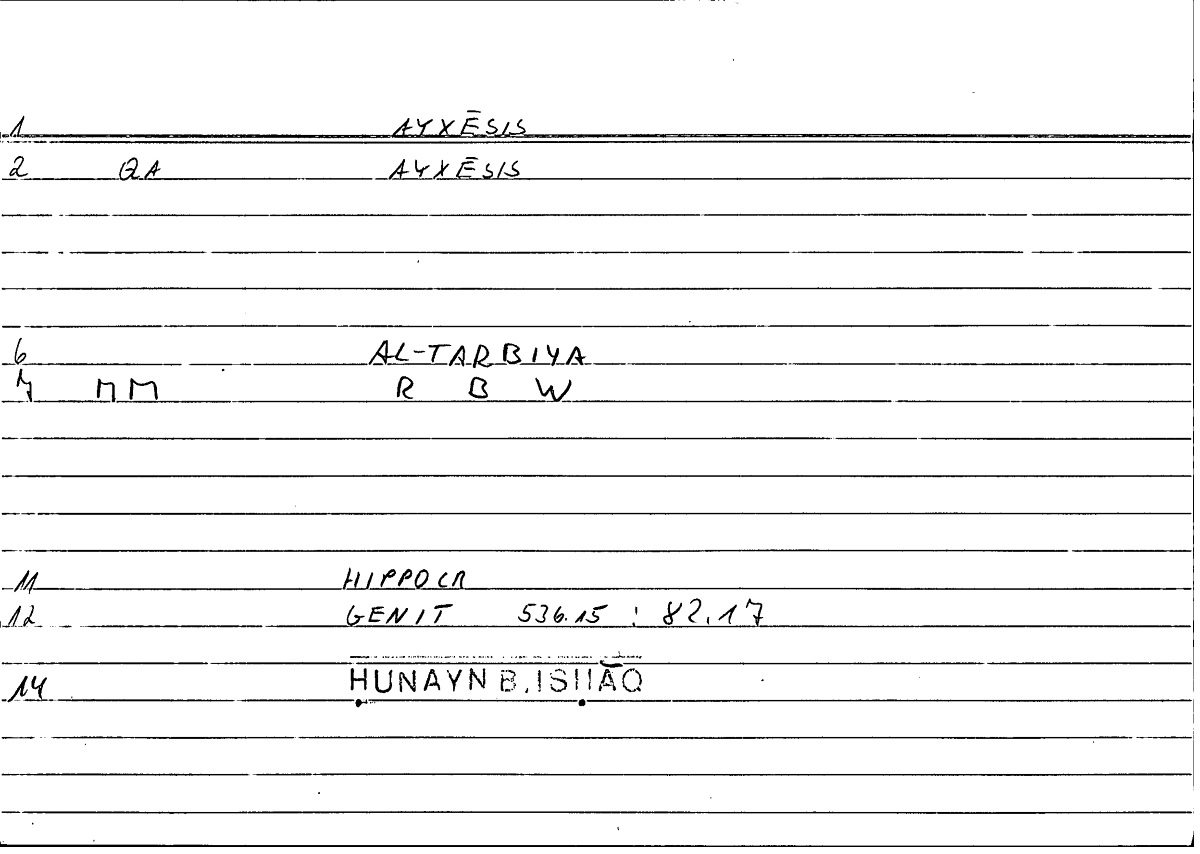 1 AYXĒSIS
2 QA AYXĒSIS
6 AL-TARBIYA
7 MM R B W
11 HIPPOCR
12 GENIT 536.15 : 82.17
14 HUNAYN B. ISḤĀQ